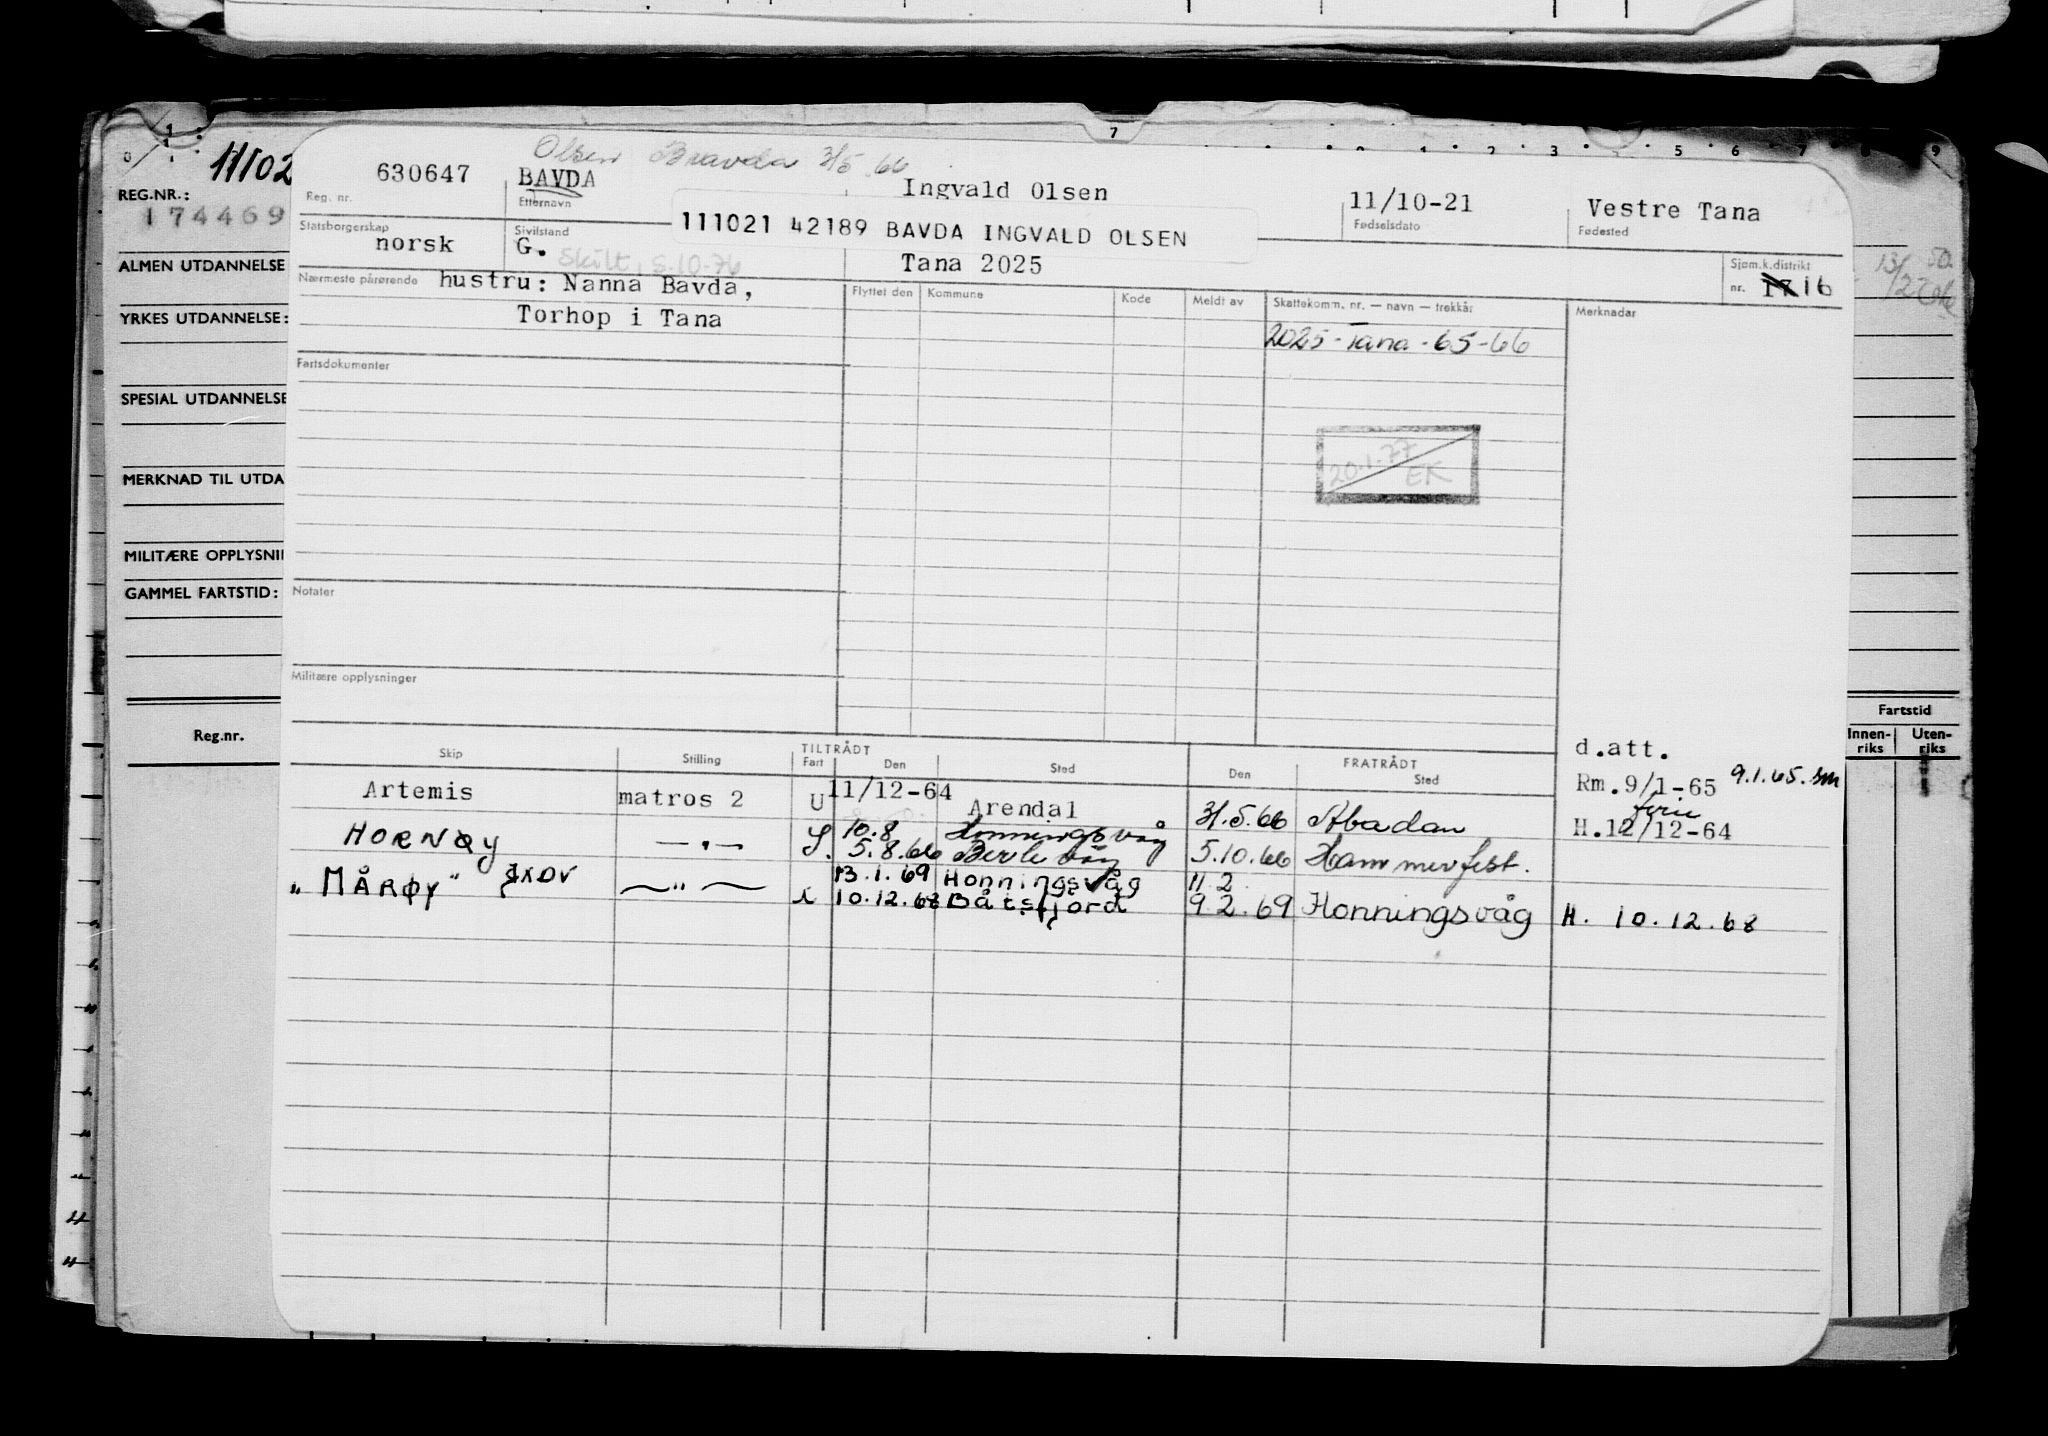 7
0 1 7 1 2 3 4 5 6 7 8 9
11102
REG.NR.:
174469
ALMEN UTDANNELSE
YRKES UTDANNELSE:
SPESIAL UTDANNELSE
MERKNAD TIL UTDA
MILITÆRE OPPLYSNI
GAMMEL FARTSTID:
Reg.nr.
Olsen Bravda 3/5.66
630647 BAVDA Ingvald Olsen 11/10-21 Vestre Tana
Reg. nr. Etternavn Fødselsdato Fødested
111021 42189 BAVDA INGVALD OLSEN
Statsborgerskap Sivilstand
norsk G. Skilt, 5.10.76 Tana 2025
Sjøm.k.distrikt
nr. 17 16
Nærmeste pårørende hustru: Nanna Bavda,
Torhop i Tana
Flyttet den Kommune Kode Meldt av Skattekomm. nr. — navn — trekkår Merknader
2025-Tana-65-66
Fartsdokumenter
20.1.77
EK
Notater
Militære opplysninger
Skip Stilling TILTRÅDT Fart Den Sted FRATRÅDT Den Sted
d.att.
Artemis matros 2 U 11/12-64 Arendal 31.5.66 Abadan Rm.9/1-65 9.1.65.
ferie
H.12/12-64
10.8 Honningsvåg
HORNØY —"— S. 5.8.66 Berlevåg 5.10.66 Hammerfest.
13.1.69 Honningsvåg 11.2
"MÅRØY" JXDV —"— 10.12.68 Båtsfjord 9.2.69 Honningsvåg H. 10.12.68
Fartstid
Innen-riks Uten-riks